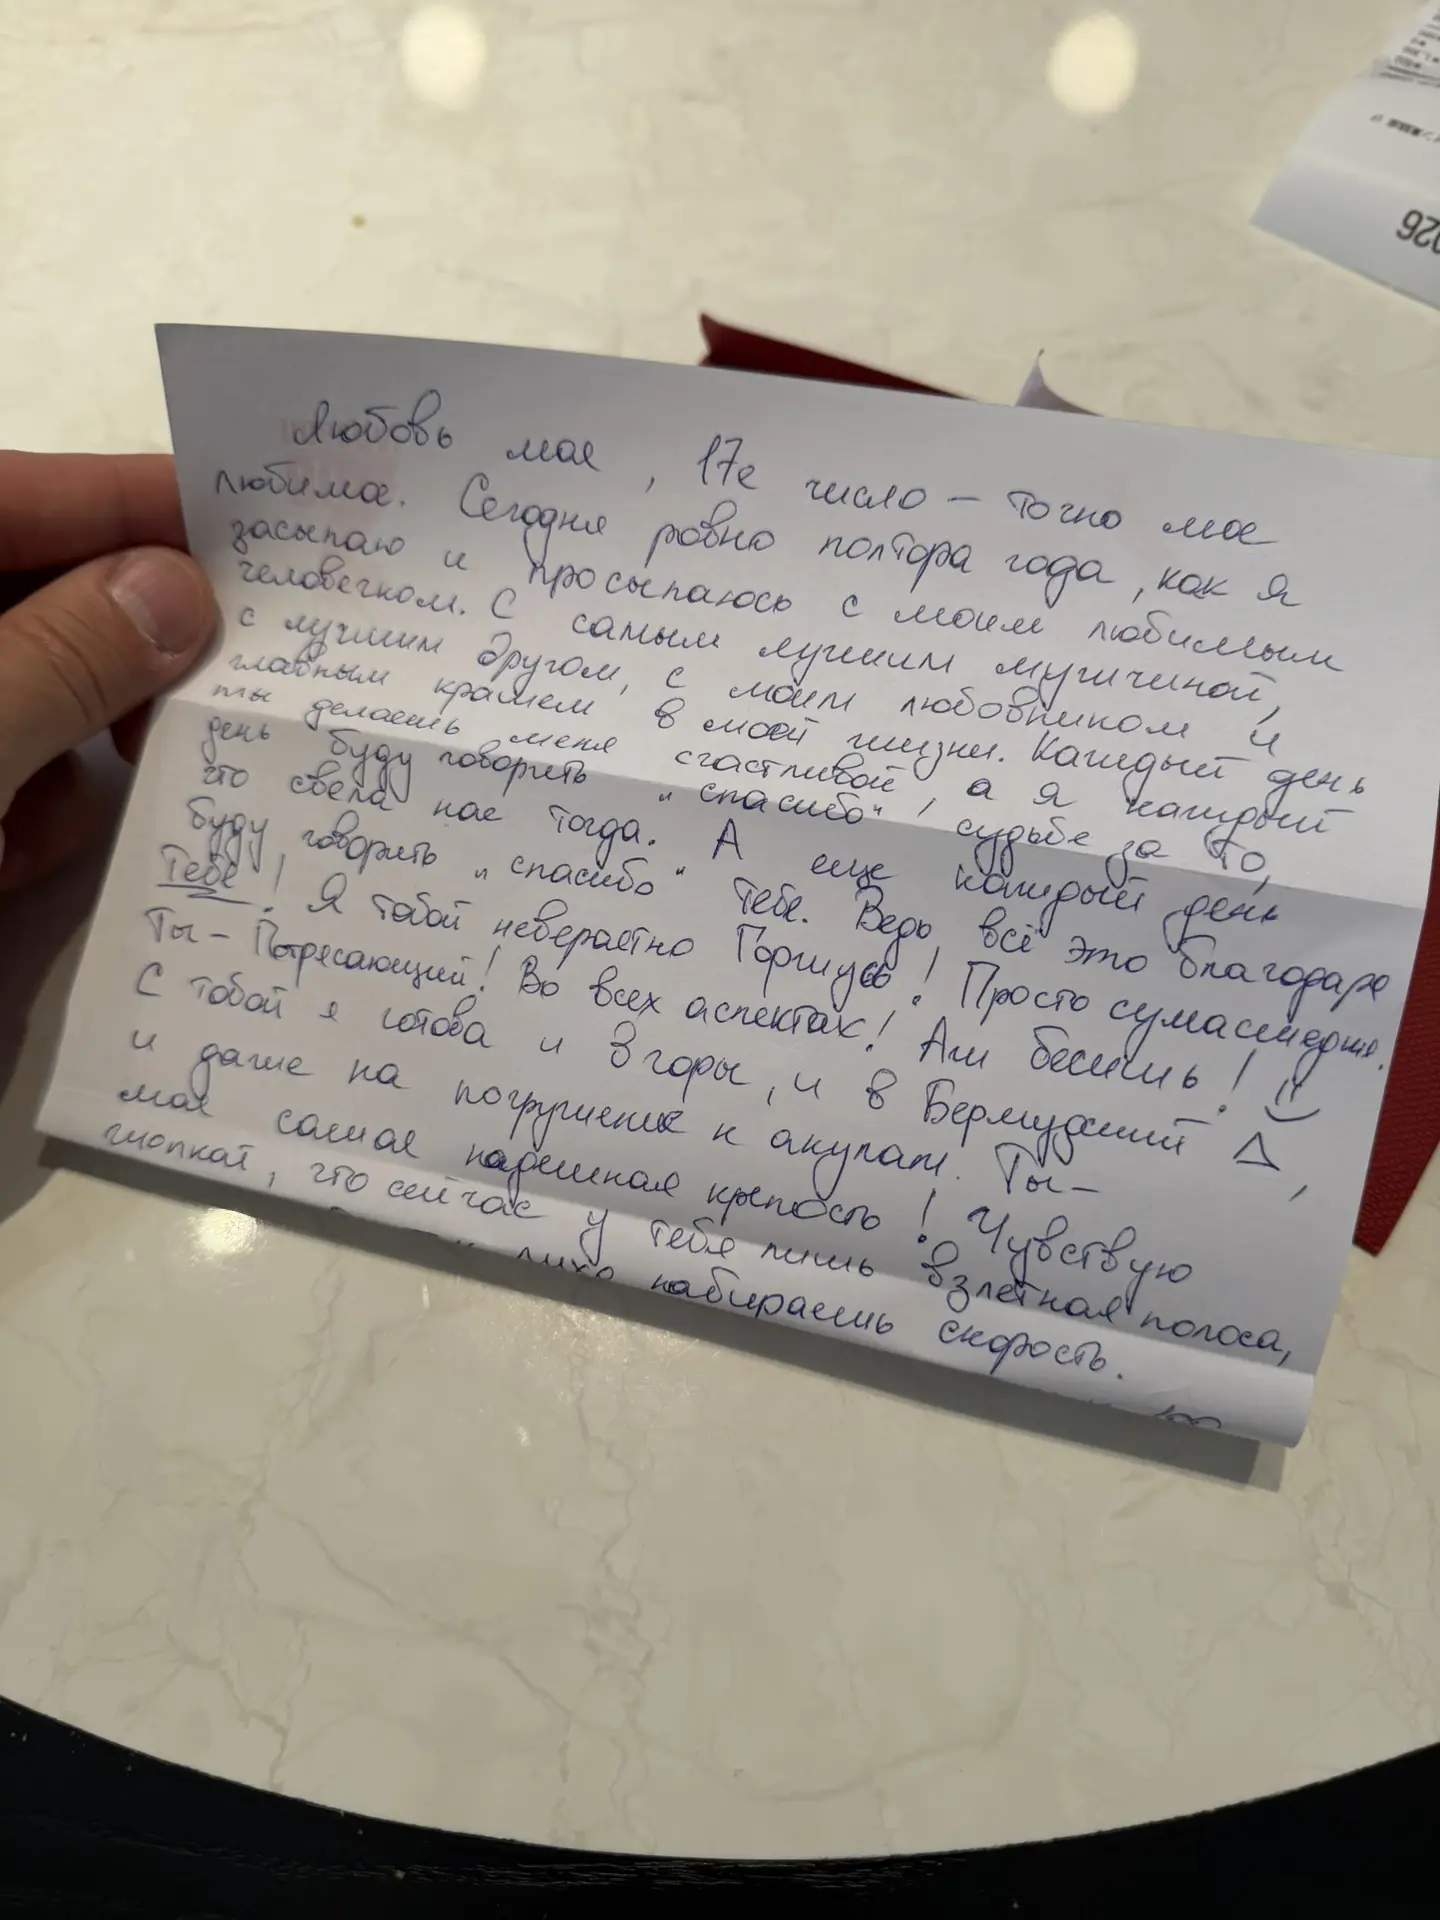 026
Любовь моя, 17е число – точно мое
любимое. Сегодня ровно полтора года, как я
засыпаю и просыпаюсь с моим любимым
человечком. С самым лучшим мужчиной,
с лучшим другом, с моим любовником и
главным крашем в моей жизни. Каждый день
ты делаешь меня счастливой, а я каждый
день буду говорить "спасибо" судьбе за то,
что свела нас тогда. А еще каждый день
буду говорить "спасибо" тебе. Ведь всё это благодаря
Тебе! Я тобой невероятно Горжусь! Просто сумасшедше.
Ты – Потрясающий! Во всех аспектах! Аж бесишь!
С тобой я готова и в горы, и в Бермудский Δ,
и даже на погружение к акулам. Ты –
моя самая надежная крепость! Чувствую
жопкой, что сейчас у тебя лишь взлетная полоса,
лихо набираешь скорость.